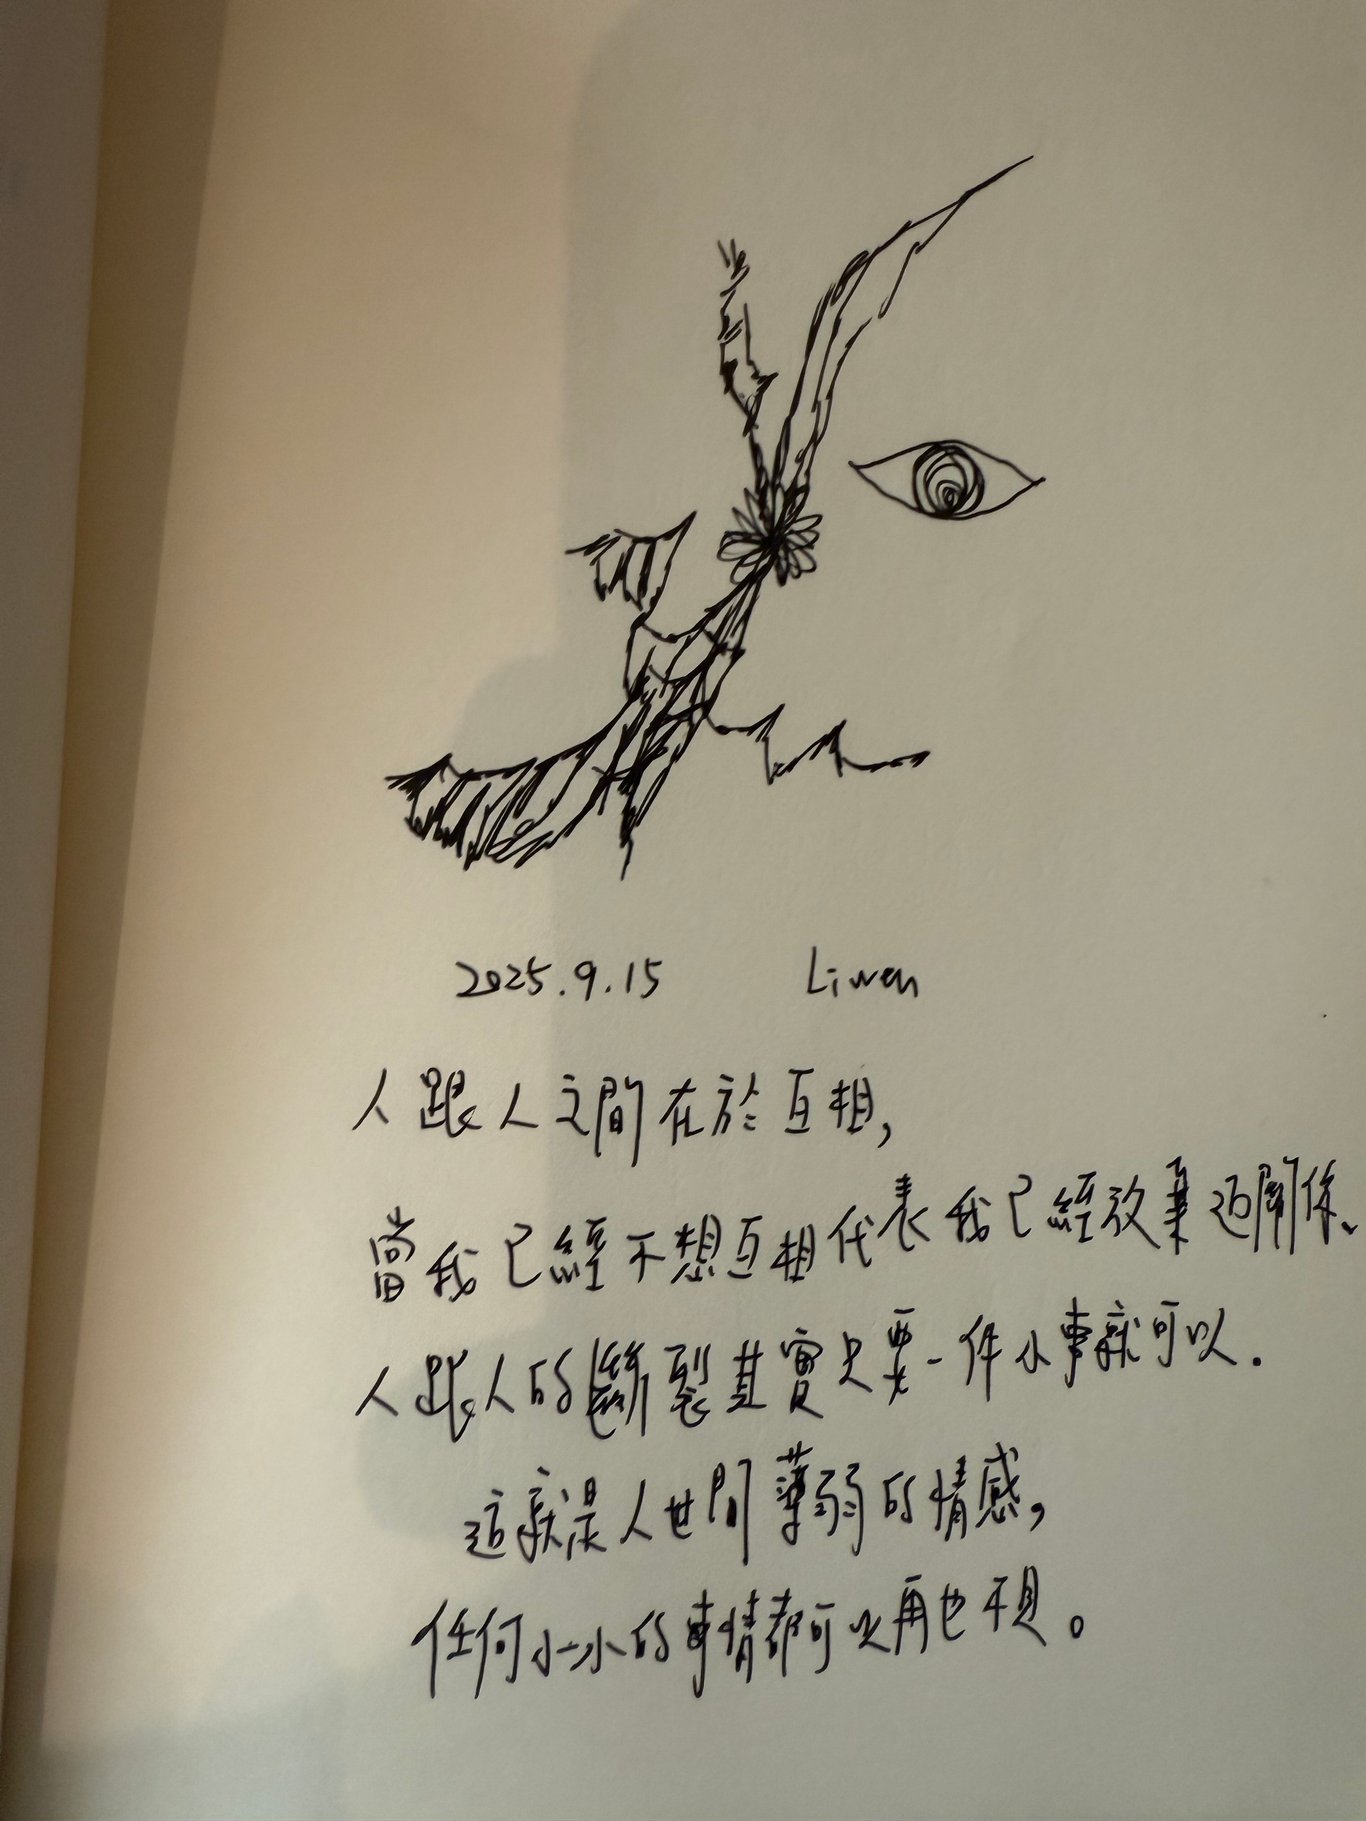 2025.9.15 Liwen
人跟人之間在於互相,
當我已經不想互相代表我已經放棄這關係、
人跟人的斷裂其實只要一件小事就可以.
這就是人世間薄弱的情感,
任何小小的事情都可以再也不見。